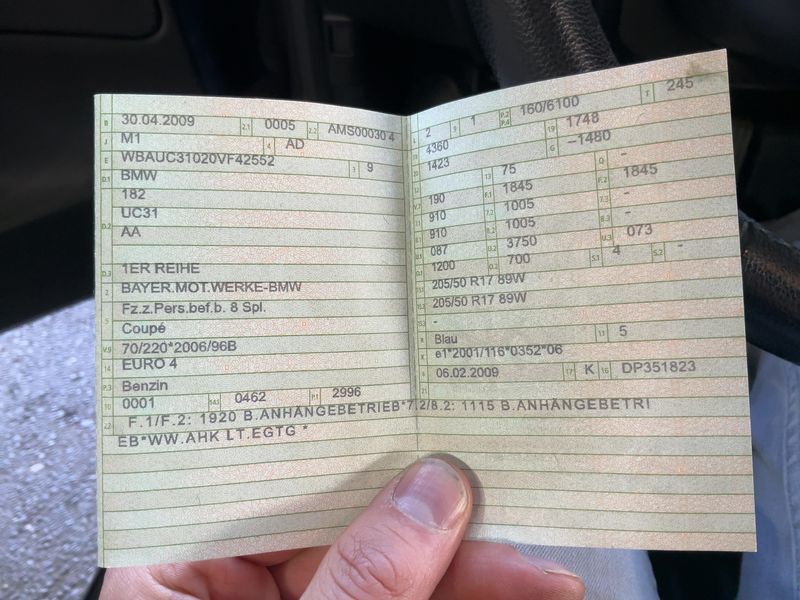 B 30.04.2009 2.1 0005 2.2 AMS000304
J M1 4 AD
E WBAUC31020VF42552 3 9
D.1 BMW
182
D.2 UC31
AA
D.3 1ER REIHE
2 BAYER.MOT.WERKE-BMW
5 Fz.z.Pers.bef.b. 8 Spl.
Coupé
V.9 70/220*2006/96B
14 EURO 4
P.3 Benzin
10 0001 14.1 0462 P.1 2996
L 2 9 1 P.2 P.4 160/6100 T 245
18 4360 19 1748
20 1423 G -1480
12 - 13 75 Q -
V.7 190 F.1 1845 F.2 1845
7.1 910 7.2 1005 7.3 -
8.1 910 8.2 1005 8.3 -
U.1 087 U.2 3750 U.3 073
O.1 1200 O.2 700 S.1 4 S.2 -
15.1 205/50 R17 89W
15.2 205/50 R17 89W
15.3 -
R Blau 11 5
K e1*2001/116*0352*06
6 06.02.2009 17 K 16 DP351823
21
22 F.1/F.2: 1920 B.ANHÄNGEBETRIEB*7.2/8.2: 1115 B.ANHÄNGEBETRI
EB*WW.AHK LT.EGTG *